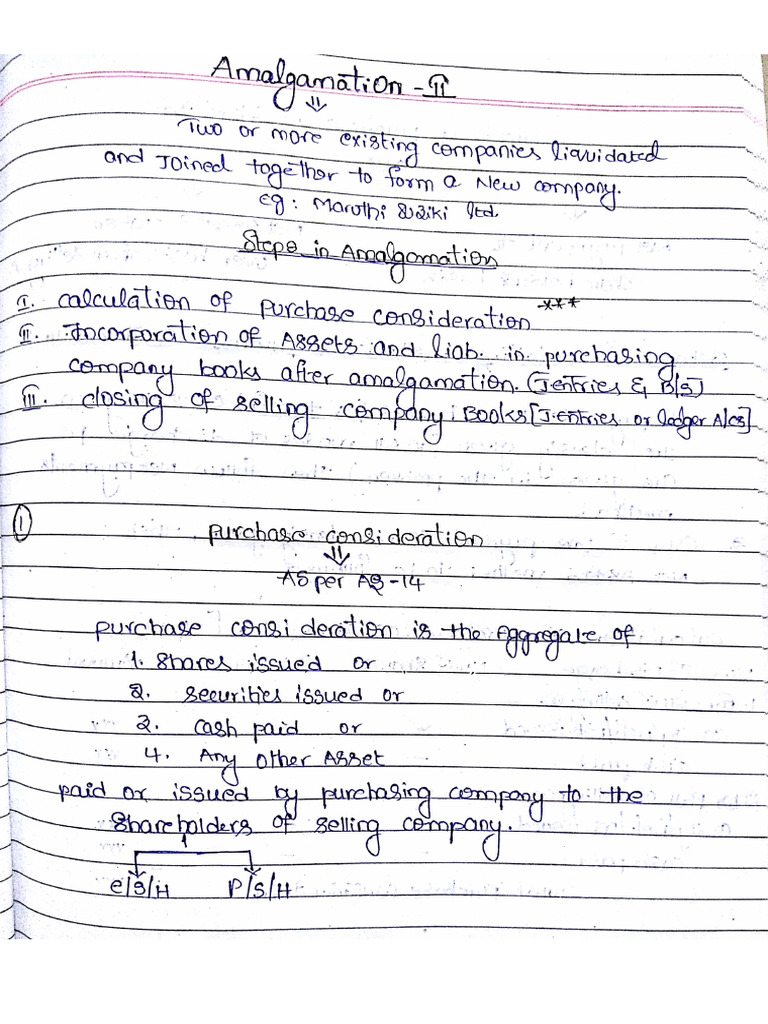 Amalgamation - II
⇓
Two or more existing companies liquidated
and Joined together to form a New company.
eg: Maruthi Suziki ltd.
Steps in Amalgamation
I. Calculation of purchase consideration ***
II. Incorporation of Assets and liab. in purchasing
company books after amalgamation. (J.entries & B/S)
III. closing of selling company Books [J.entries or ledger A/cs]
① purchase consideration
⇓
As per AS-14
purchase consideration is the Aggregate of
1. Shares issued or
2. Securities issued or
3. Cash paid or
4. Any other Asset
paid or issued by purchasing company to the
Shareholders of selling company.
E/S/H P/S/H